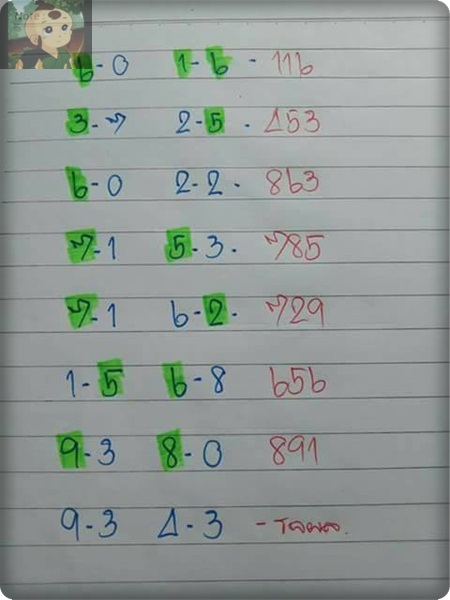 Note
6-0 1-6 - 116
3-7 2-5 . 453
6-0 2-2. 863
7-1 5-3. 785
7-1 6-2. 729
1-5 6-8 656
9-3 8-0 891
9-3 4-3 -